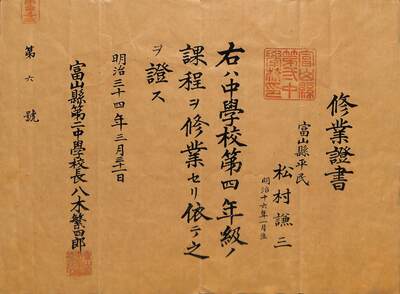 修業證書
富山縣平民
松村謙三
明治十六年一月生
右ハ中學校第四年級ノ
課程ヲ修業セリ依テ之
ヲ證ス
明治三十四年三月三十一日
富山縣第二中學校長八木繁四郎
第六號